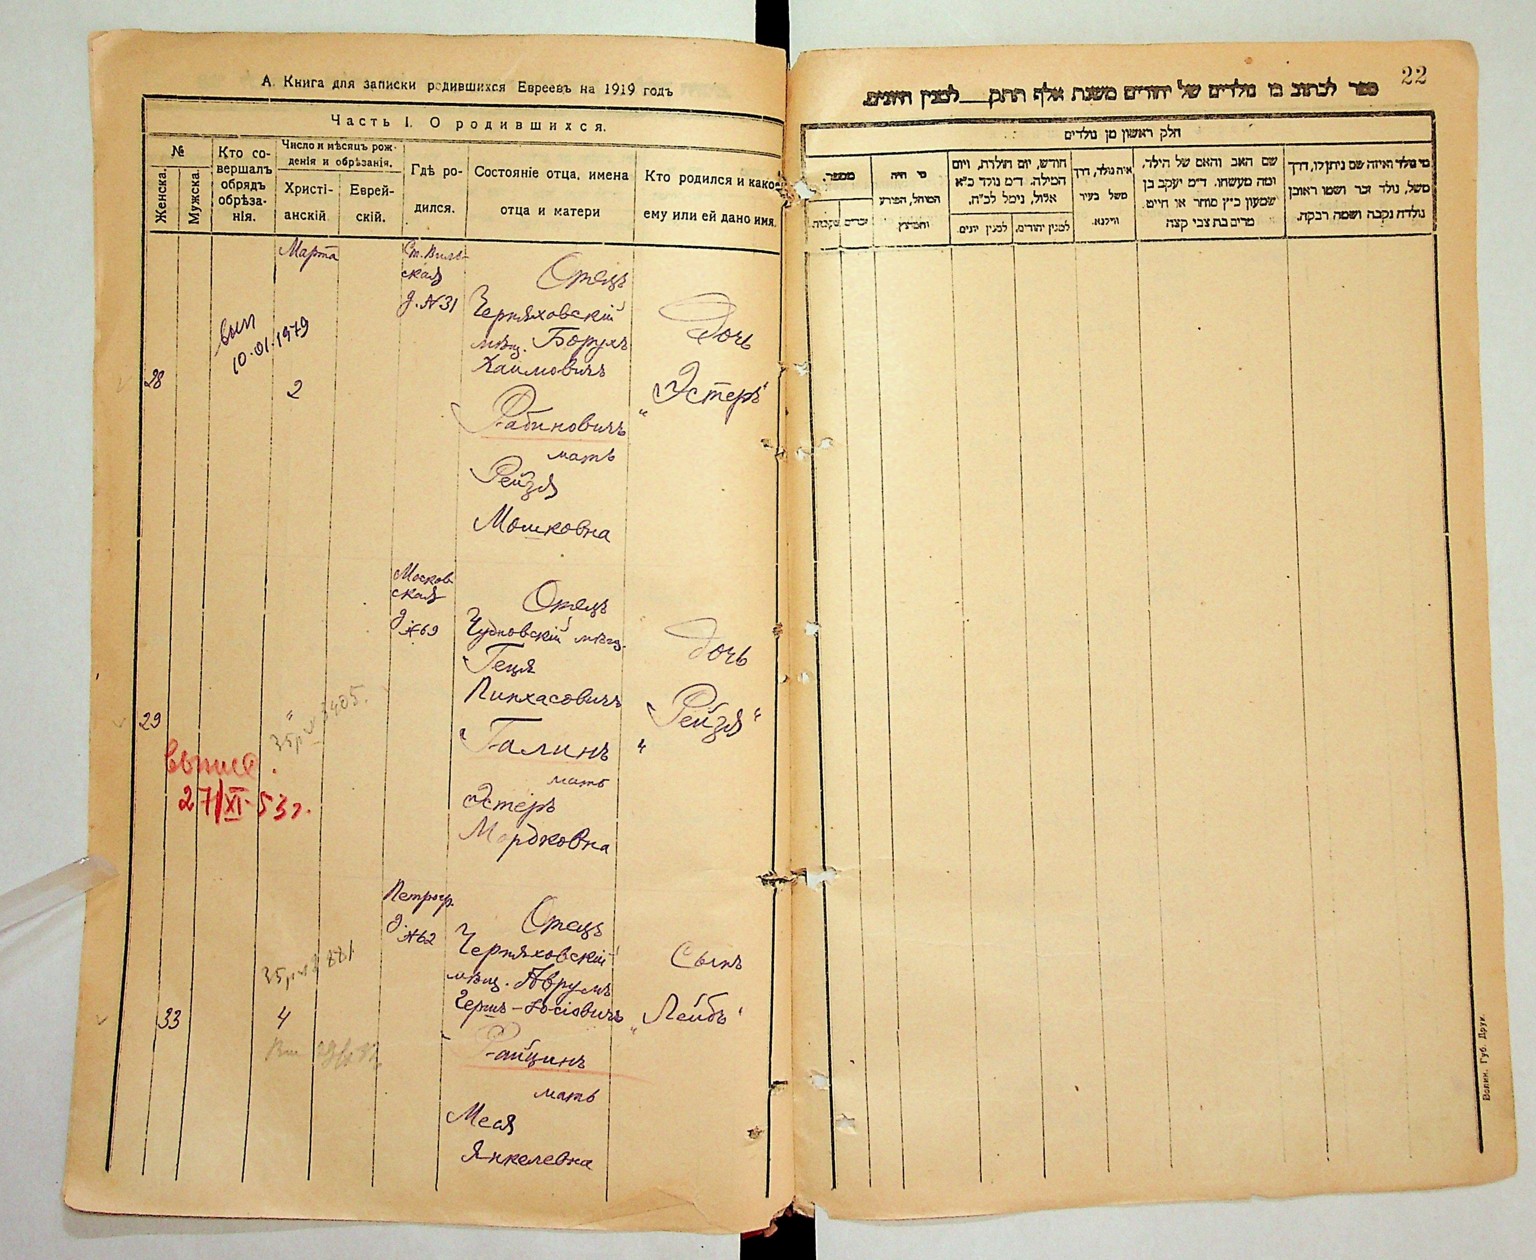 А. Книга для записки родившихся Евреевъ на 1919 годъ
Часть I. О родившихся.
№
Женска.
Мужска.
Кто со-
вершалъ
обрядъ
обрѣза-
нія.
Число и мѣсяцъ рож-
денія и обрѣзанія.
Христі-
анскій.
Еврей-
скій.
Гдѣ ро-
дился.
Состояніе отца, имена
отца и матери
Кто родился и како-
ему или ей дано имя.
Марта
ская
д. №31
Отецъ
Черняховскій
мѣщ. Борухъ
Хаимовичъ
Рабиновичъ
мать
Рейзя
Мошковна
Дочь
„Эстеръ“
вып
10.01.1979
28
2
Москов
ская
д №69
Отецъ
Чудновскій мѣщ.
Геця
Пинхасовичъ
Галинъ
мать
Эстеръ
Мордковна
дочь
„Рейзя“
29
"
27/XI-53г.
Петрогр.
д №62
Отецъ
Черняховскій
мѣщ. Аврумъ
Гершъ-Іосіовичъ
Райцинъ
мать
Мея
Янкелевна
Сынъ
„Лейбъ“
33
4
22
ספר לכתוב בו נולדים של יהודים משנת אלף התתק___למנין היונים.
חלק ראשון מן נולדים
מי נולד ואיזה שם ניתן לו, דרך
משל, נולד זכר ושמו ראובן
נולדה נקבה ושמה רבקה.
שם האב והאם של הילד.
ומה מעשהו. ד״מ יעקב בן
שמעון כ״ץ סוחר או חייט.
מרים בת צבי קצה
איה נולד, דרך
משל בעיר
ווילנא.
חודש, יום הולדת, ויום
המילה. ד״מ נולד כ״א
אלול, נימל לכ״ח.
למנין יהודים.
למנין יונים.
מי היה
המוהל, הפורע
והמוצץ
מספר.
זכרים
נקבות
Волин. Губ. Друк.